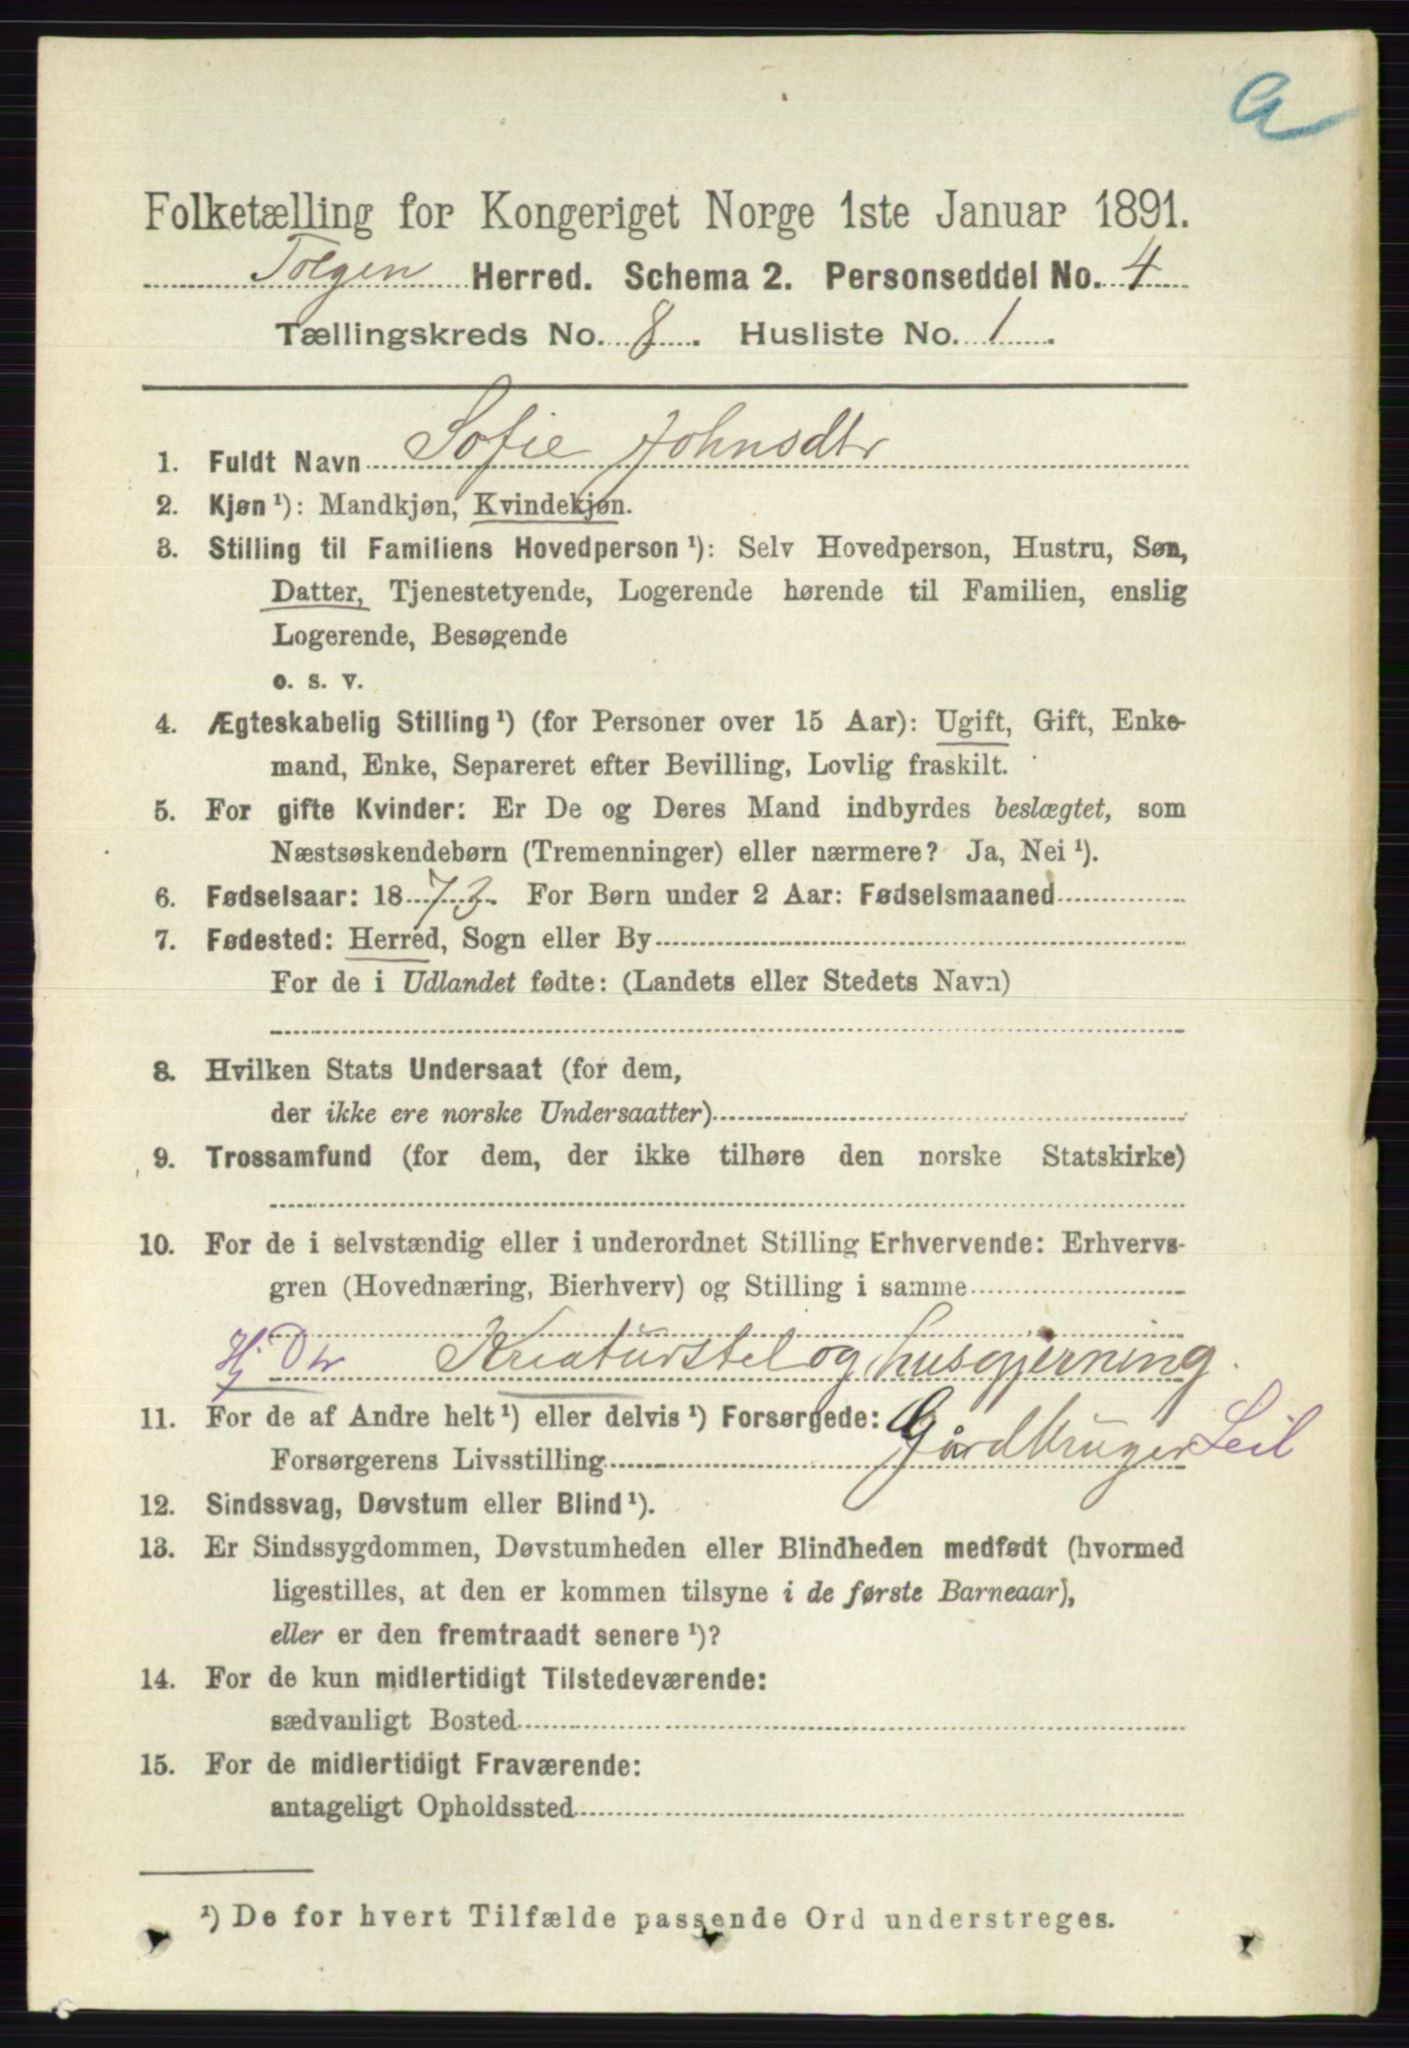 G
Folketælling for Kongeriget Norge 1ste Januar 1891.
Tolgen Herred. Schema 2. Personseddel No. 4
Tællingskreds No. 8. Husliste No. 1.
1. Fuldt Navn Sofie Johnsdtr
2. Kjøn ¹): Mandkjøn, Kvindekjøn.
3. Stilling til Familiens Hovedperson ¹): Selv Hovedperson, Hustru, Søn,
Datter, Tjenestetyende, Logerende hørende til Familien, enslig
Logerende, Besøgende
o. s. v.
4. Ægteskabelig Stilling ¹) (for Personer over 15 Aar): Ugift, Gift, Enke-
mand, Enke, Separeret efter Bevilling, Lovlig fraskilt.
5. For gifte Kvinder: Er De og Deres Mand indbyrdes beslægtet, som
Næstsøskendebørn (Tremenninger) eller nærmere? Ja, Nei ¹).
6. Fødselsaar: 1873. For Børn under 2 Aar: Fødselsmaaned
7. Fødested: Herred, Sogn eller By
For de i Udlandet fødte: (Landets eller Stedets Navn)
8. Hvilken Stats Undersaat (for dem,
der ikke ere norske Undersaatter)
9. Trossamfund (for dem, der ikke tilhøre den norske Statskirke)
10. For de i selvstændig eller i underordnet Stilling Erhvervende: Erhvervs-
gren (Hovednæring, Bierhverv) og Stilling i samme
Hj Dtr Kreaturstel og husgjerning.
11. For de af Andre helt ¹) eller delvis ¹) Forsørgede:
Forsørgerens Livsstilling Gårdbruger Leil
12. Sindssvag, Døvstum eller Blind ¹).
13. Er Sindssygdommen, Døvstumheden eller Blindheden medfødt (hvormed
ligestilles, at den er kommen tilsyne i de første Barneaar),
eller er den fremtraadt senere ¹)?
14. For de kun midlertidigt Tilstedeværende:
sædvanligt Bosted
15. For de midlertidigt Fraværende:
antageligt Opholdssted
¹) De for hvert Tilfælde passende Ord understreges.